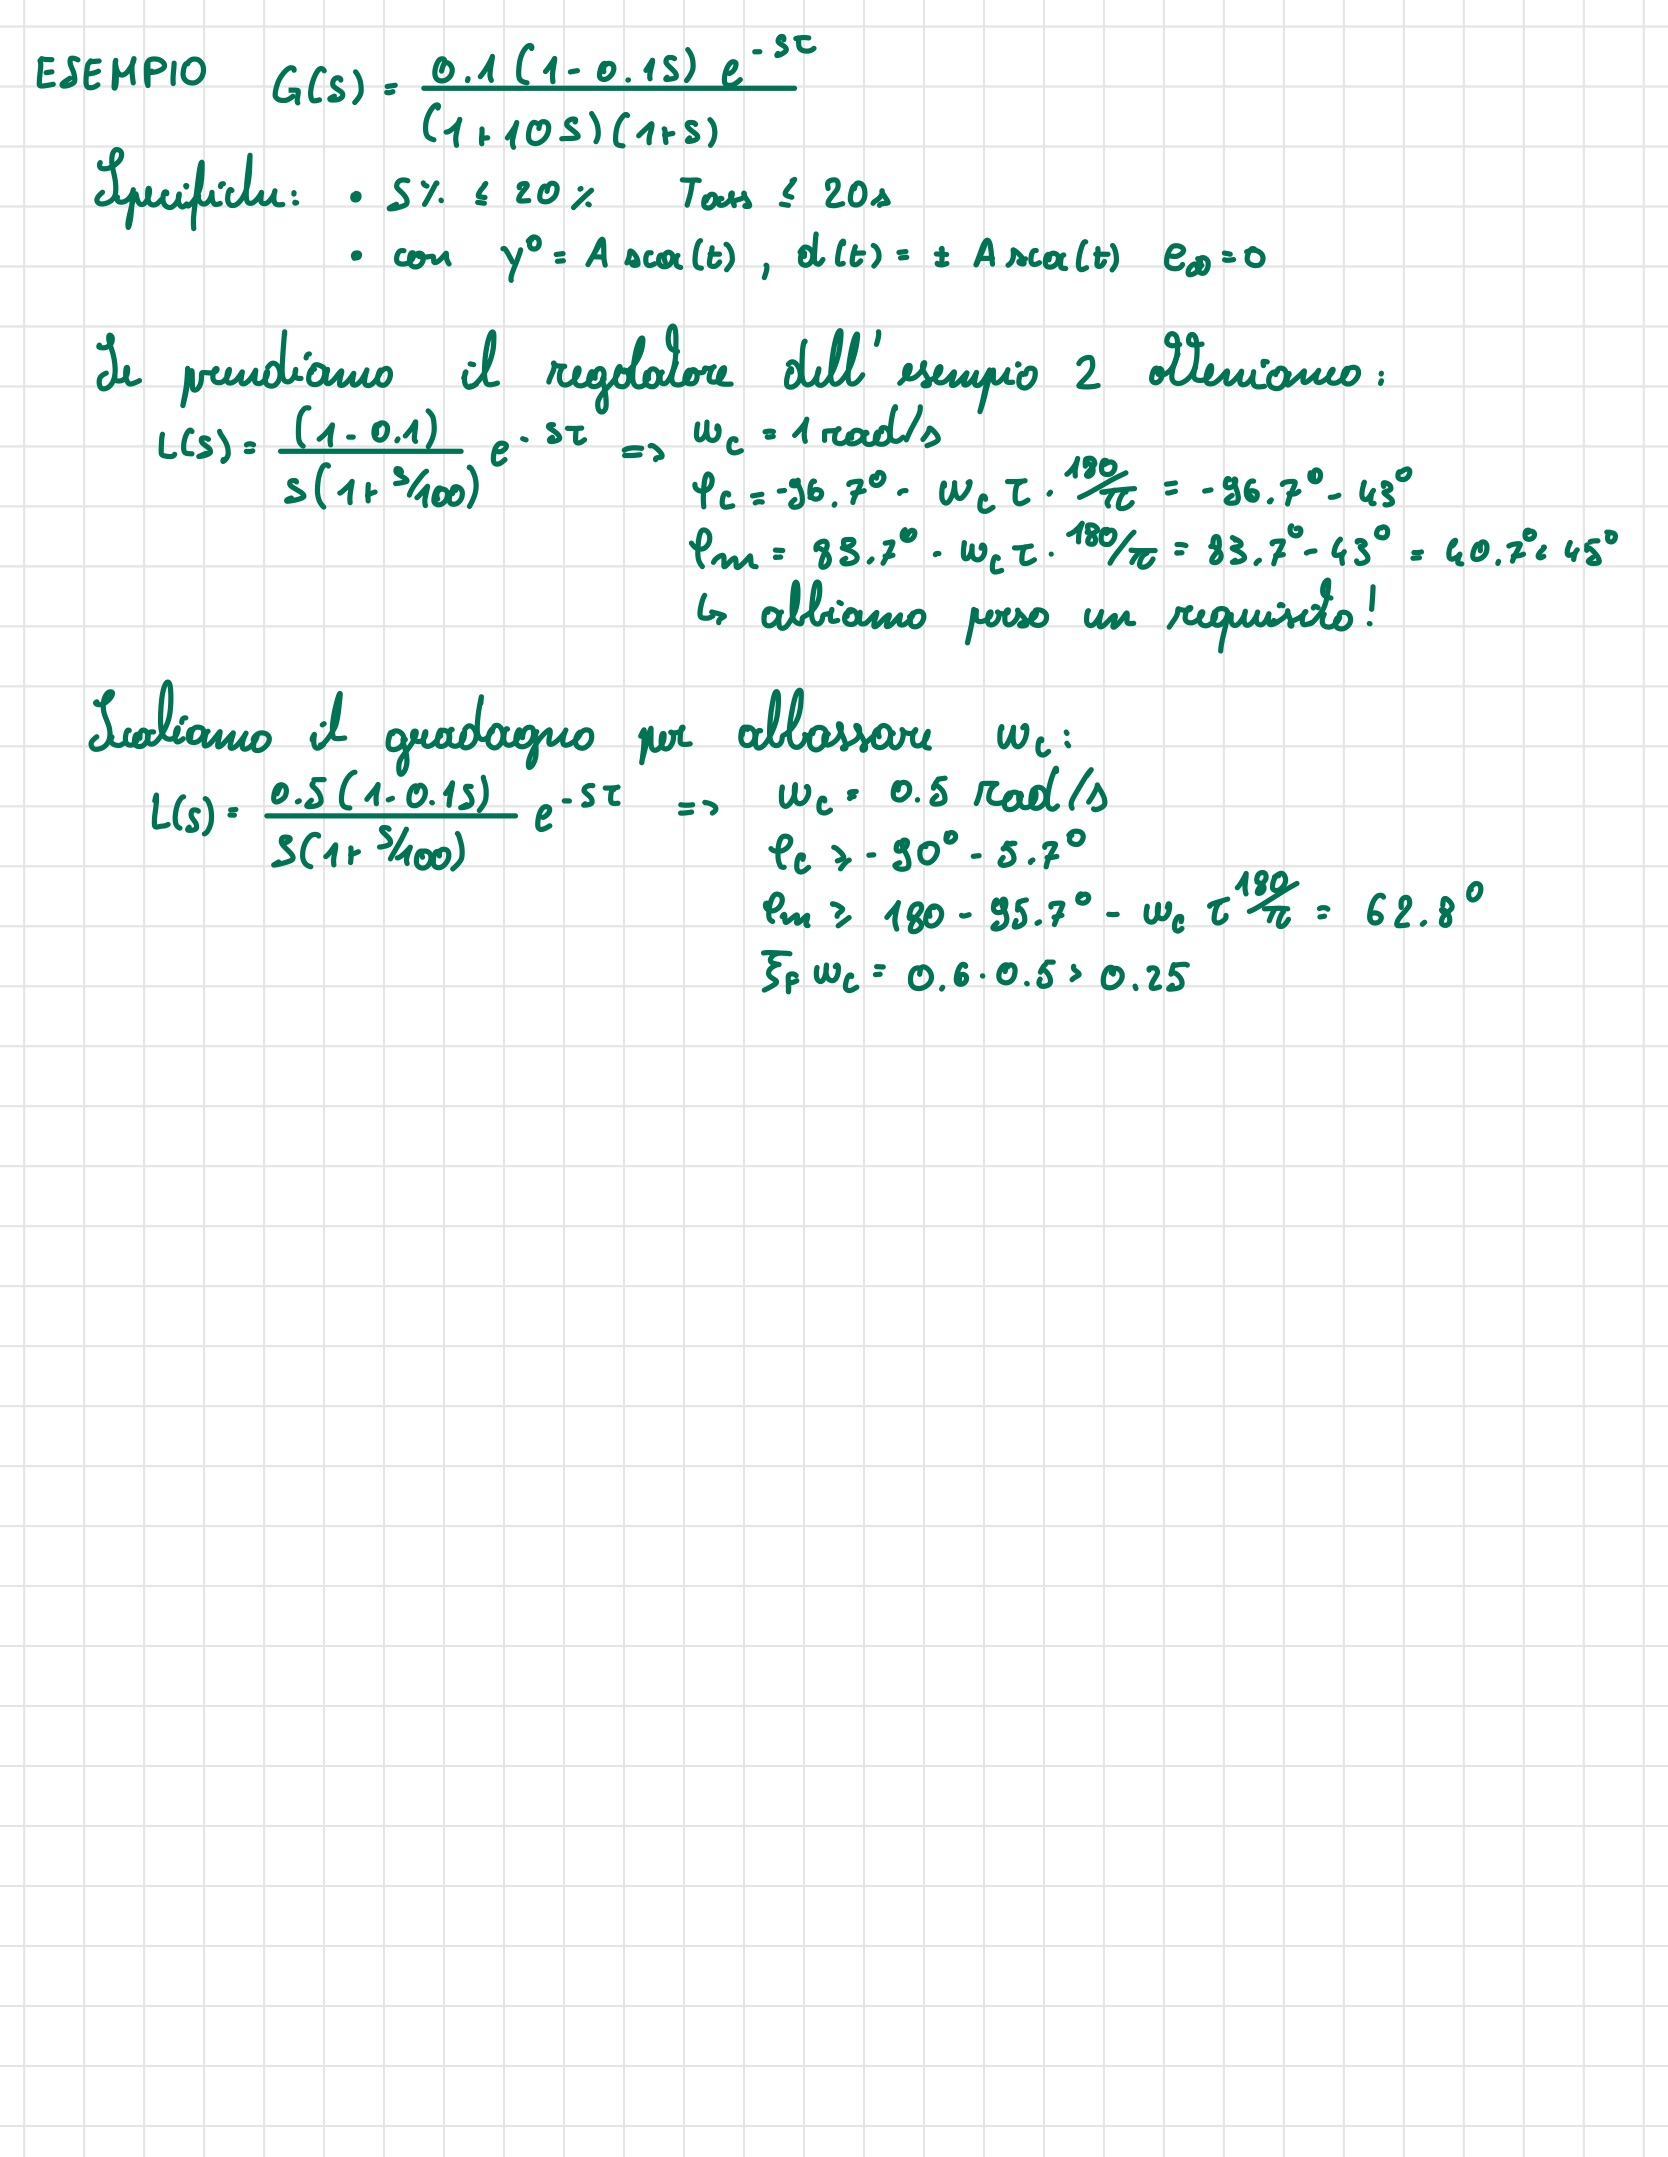 ESEMPIO G(s) = 0.1 (1 - 0.1s) e^{-sτ} / (1+10s)(1+s)
Specifiche: • S% ≤ 20% Tass ≤ 20s
• con y° = A sca(t), d(t) = ± A sca(t) e∞ = 0
Se prendiamo il regolatore dell'esempio 2 otteniamo:
L(s) = (1 - 0.1) / s(1 + s/100) e^{-sτ} => ωc = 1 rad/s
φc = -96.7° - ωc τ · 180/π = -96.7° - 43°
φm = 83.7° - ωc τ · 180/π = 83.7° - 43° = 40.7° < 45°
↳ abbiamo perso un requisito!
Scaliamo il guadagno per abbassare ωc:
L(s) = 0.5 (1 - 0.1s) / s(1 + s/100) e^{-sτ} => ωc = 0.5 rad/s
φc ≥ -90° - 5.7°
φm ≥ 180 - 95.7° - ωc τ 180/π = 62.8°
ξF ωc = 0.6 · 0.5 > 0.25